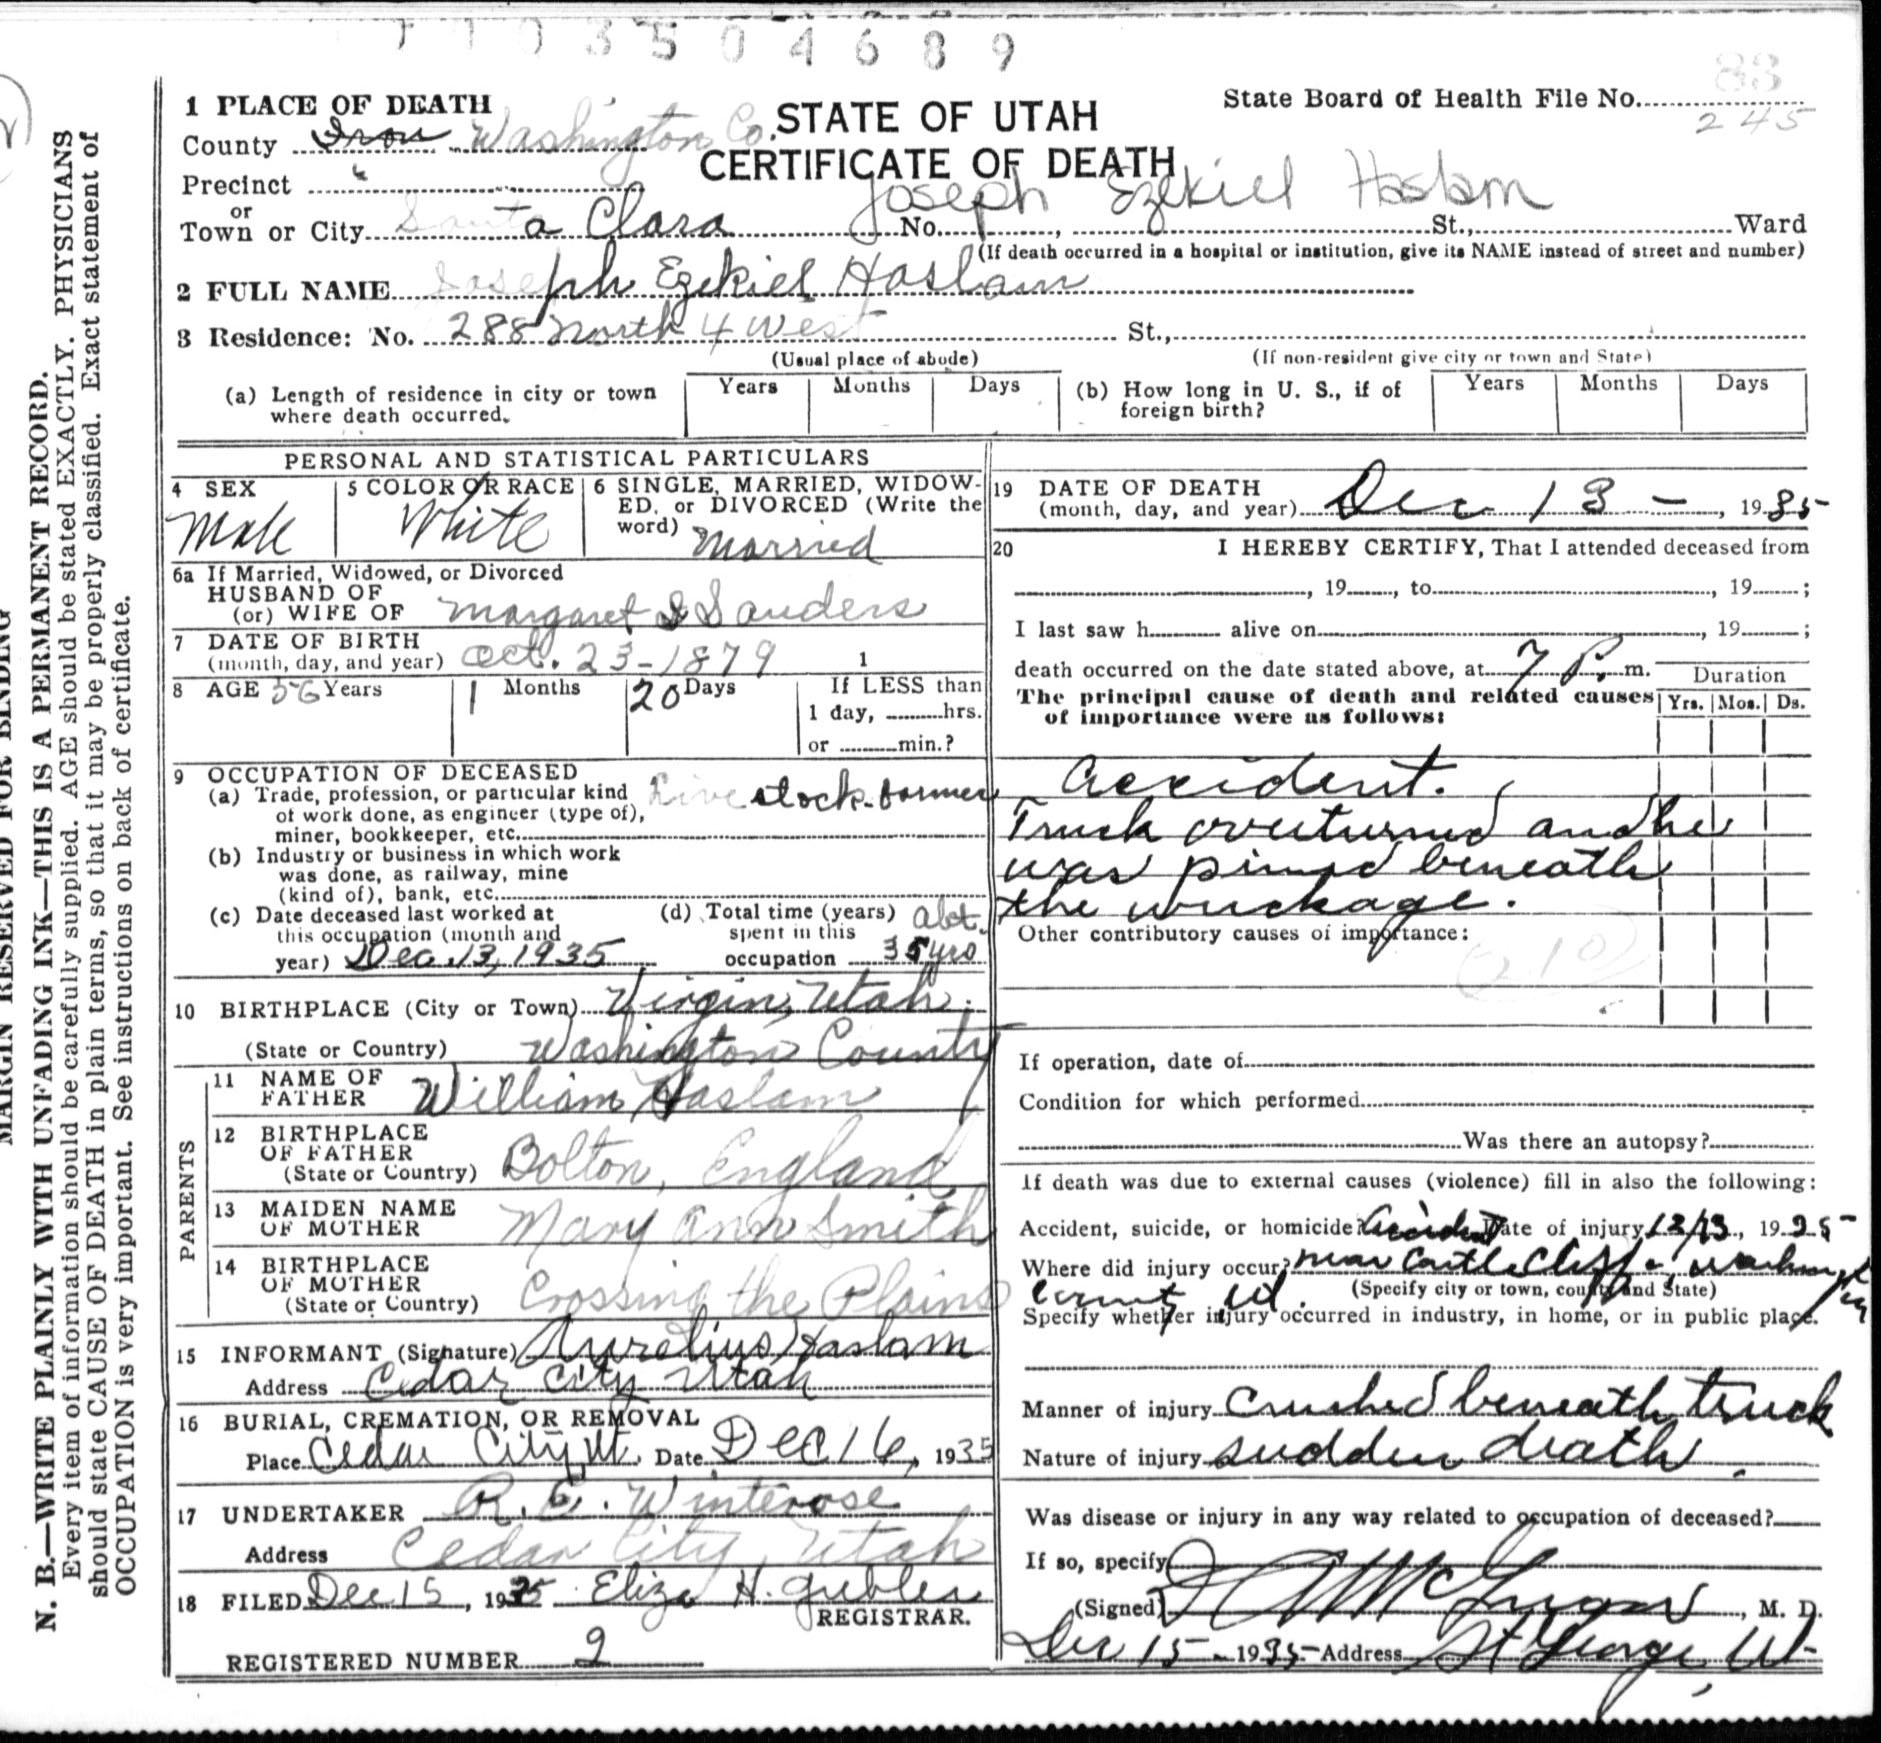 1 1 0 3 5 0 4 6 8 9
1 PLACE OF DEATH
STATE OF UTAH
CERTIFICATE OF DEATH
State Board of Health File No. 83
245
County Iron Washington Co.
Precinct
Joseph Ezekiel Haslam
or
Town or City Santa Clara No. St., Ward
(If death occurred in a hospital or institution, give its NAME instead of street and number)
2 FULL NAME Joseph Ezekiel Haslam
3 Residence: No. 288 North 4 West St.,
(Usual place of abode) (If non-resident give city or town and State)
(a) Length of residence in city or town where death occurred. Years Months Days
(b) How long in U. S., if of foreign birth? Years Months Days
PERSONAL AND STATISTICAL PARTICULARS
4 SEX Male
5 COLOR OR RACE White
6 SINGLE, MARRIED, WIDOW-
ED, or DIVORCED (Write the
word) Married
6a If Married, Widowed, or Divorced
HUSBAND OF
(or) WIFE OF Margaret S Sanders
7 DATE OF BIRTH
(month, day, and year) Oct. 23-1879 1
8 AGE 56 Years 1 Months 20 Days
If LESS than
1 day, hrs.
or min.?
9 OCCUPATION OF DECEASED
(a) Trade, profession, or particular kind Livestock-farmer
of work done, as engineer (type of),
miner, bookkeeper, etc.
(b) Industry or business in which work
was done, as railway, mine
(kind of), bank, etc.
(c) Date deceased last worked at
this occupation (month and
year) Dec. 13, 1935
(d) Total time (years) abt.
spent in this
occupation 35 yrs
10 BIRTHPLACE (City or Town) Virgin, Utah.
(State or Country) Washington County
PARENTS
11 NAME OF
FATHER William Haslam
12 BIRTHPLACE
OF FATHER
(State or Country) Bolton, England
13 MAIDEN NAME
OF MOTHER Mary Ann Smith
14 BIRTHPLACE
OF MOTHER
(State or Country) Crossing the Plains
15 INFORMANT (Signature) Aurelius Haslam
Address Cedar City Utah
16 BURIAL, CREMATION, OR REMOVAL
Place Cedar City, Ut. Date Dec 16, 1935
17 UNDERTAKER R. E. Winterose
Address Cedar City, Utah
18 FILED Dec 15, 1935 Eliza H. Gubler
REGISTRAR.
REGISTERED NUMBER 2
19 DATE OF DEATH
(month, day, and year) Dec 13 -, 1935
20 I HEREBY CERTIFY, That I attended deceased from
, 19 , to , 19 ;
I last saw h alive on , 19 ;
death occurred on the date stated above, at 7 P. m.
The principal cause of death and related causes
of importance were as follows:
Duration
Yrs. Mos. Ds.
Accident.
Truck overturned and he
was pinned beneath
the wreckage.
Other contributory causes of importance:
210
If operation, date of
Condition for which performed
Was there an autopsy?
If death was due to external causes (violence) fill in also the following:
Accident, suicide, or homicide? Accident Date of injury 12/13, 1935
Where did injury occur? near Castle Cliff, Washington
County Ut. (Specify city or town, county and State)
Specify whether injury occurred in industry, in home, or in public place.
Manner of injury crushed beneath truck
Nature of injury sudden death.
Was disease or injury in any way related to occupation of deceased?
If so, specify
(Signed) McGregor, M. D.
Dec 15 - 1935 Address St George, Ut
MARGIN RESERVED FOR BINDING
N. B.—WRITE PLAINLY WITH UNFADING INK—THIS IS A PERMANENT RECORD.
Every item of information should be carefully supplied. AGE should be stated EXACTLY. PHYSICIANS
should state CAUSE OF DEATH in plain terms, so that it may be properly classified. Exact statement of
OCCUPATION is very important. See instructions on back of certificate.